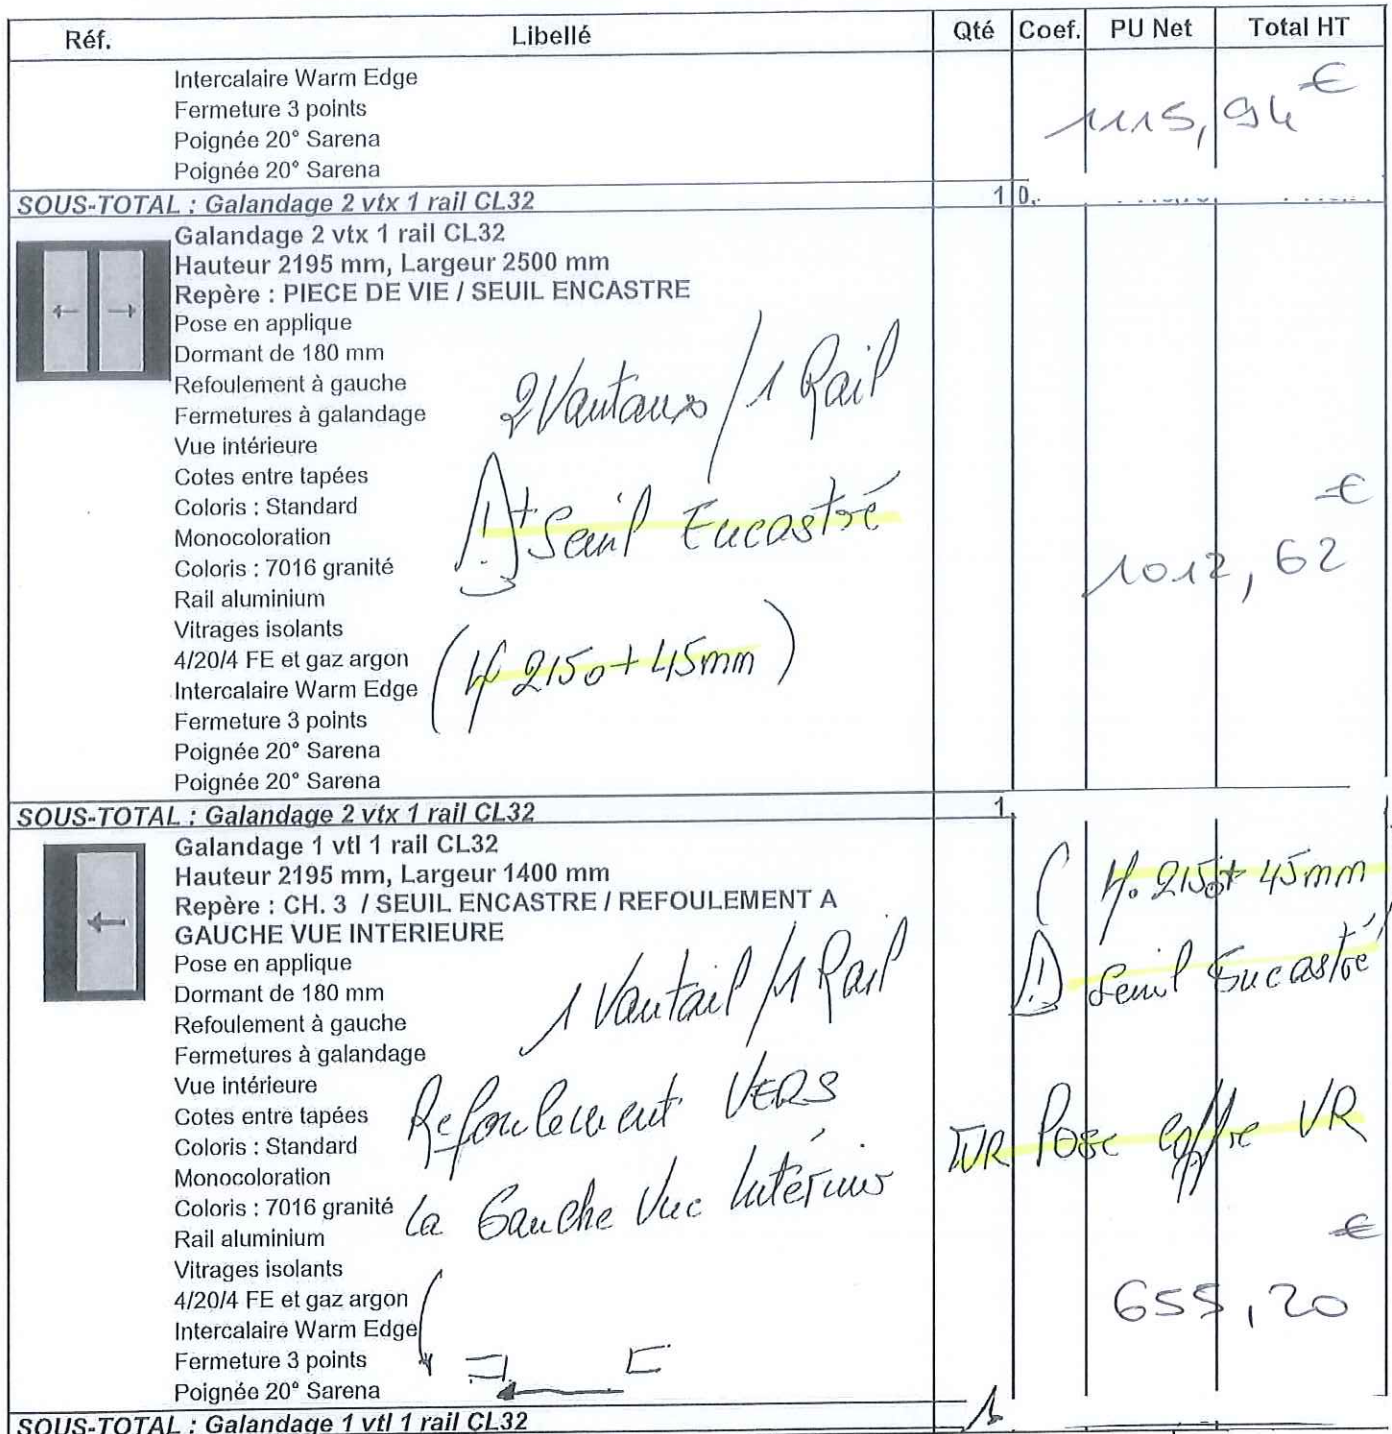 Réf. Libellé Qté Coef. PU Net Total HT
Intercalaire Warm Edge
Fermeture 3 points
Poignée 20° Sarena
Poignée 20° Sarena
1115,94 €
SOUS-TOTAL : Galandage 2 vtx 1 rail CL32 1 0,
Galandage 2 vtx 1 rail CL32
Hauteur 2195 mm, Largeur 2500 mm
Repère : PIECE DE VIE / SEUIL ENCASTRE
Pose en applique
Dormant de 180 mm
Refoulement à gauche
Fermetures à galandage
Vue intérieure
Cotes entre tapées
Coloris : Standard
Monocoloration
Coloris : 7016 granité
Rail aluminium
Vitrages isolants
4/20/4 FE et gaz argon
Intercalaire Warm Edge
Fermeture 3 points
Poignée 20° Sarena
Poignée 20° Sarena
2 Vantaux / 1 Rail
! + Seuil Encastré
(H 2150 + 45mm)
1012,62 €
SOUS-TOTAL : Galandage 2 vtx 1 rail CL32 1
Galandage 1 vtl 1 rail CL32
Hauteur 2195 mm, Largeur 1400 mm
Repère : CH. 3 / SEUIL ENCASTRE / REFOULEMENT A
GAUCHE VUE INTERIEURE
Pose en applique
Dormant de 180 mm
Refoulement à gauche
Fermetures à galandage
Vue intérieure
Cotes entre tapées
Coloris : Standard
Monocoloration
Coloris : 7016 granité
Rail aluminium
Vitrages isolants
4/20/4 FE et gaz argon
Intercalaire Warm Edge
Fermeture 3 points
Poignée 20° Sarena
1 Vantail / 1 Rail
Refoulement VERS
la Gauche Vue Intérieur
( H. 2150+ 45mm
! Seuil Encastré
Pose coffre VR
655,20 €
SOUS-TOTAL : Galandage 1 vtl 1 rail CL32 1